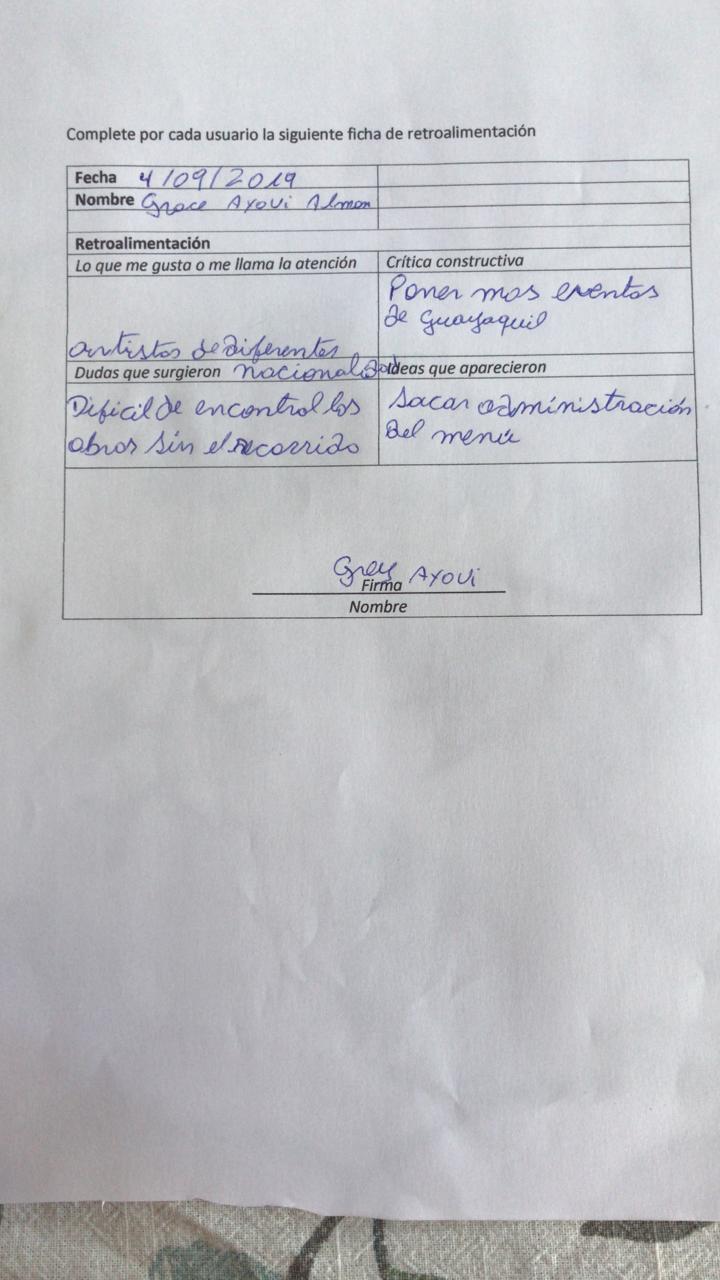 Complete por cada usuario la siguiente ficha de retroalimentación
Fecha 4/09/2019
Nombre Grace Ayovi Almon
Retroalimentación
Lo que me gusta o me llama la atención
Crítica constructiva
artistas de diferentes
nacionalidad
Poner mas eventos
de Guayaquil
Dudas que surgieron
Ideas que aparecieron
Dificil de encontral los
obras sin el recorrido
Sacar administración
del menú
Grey Ayovi
Firma
Nombre